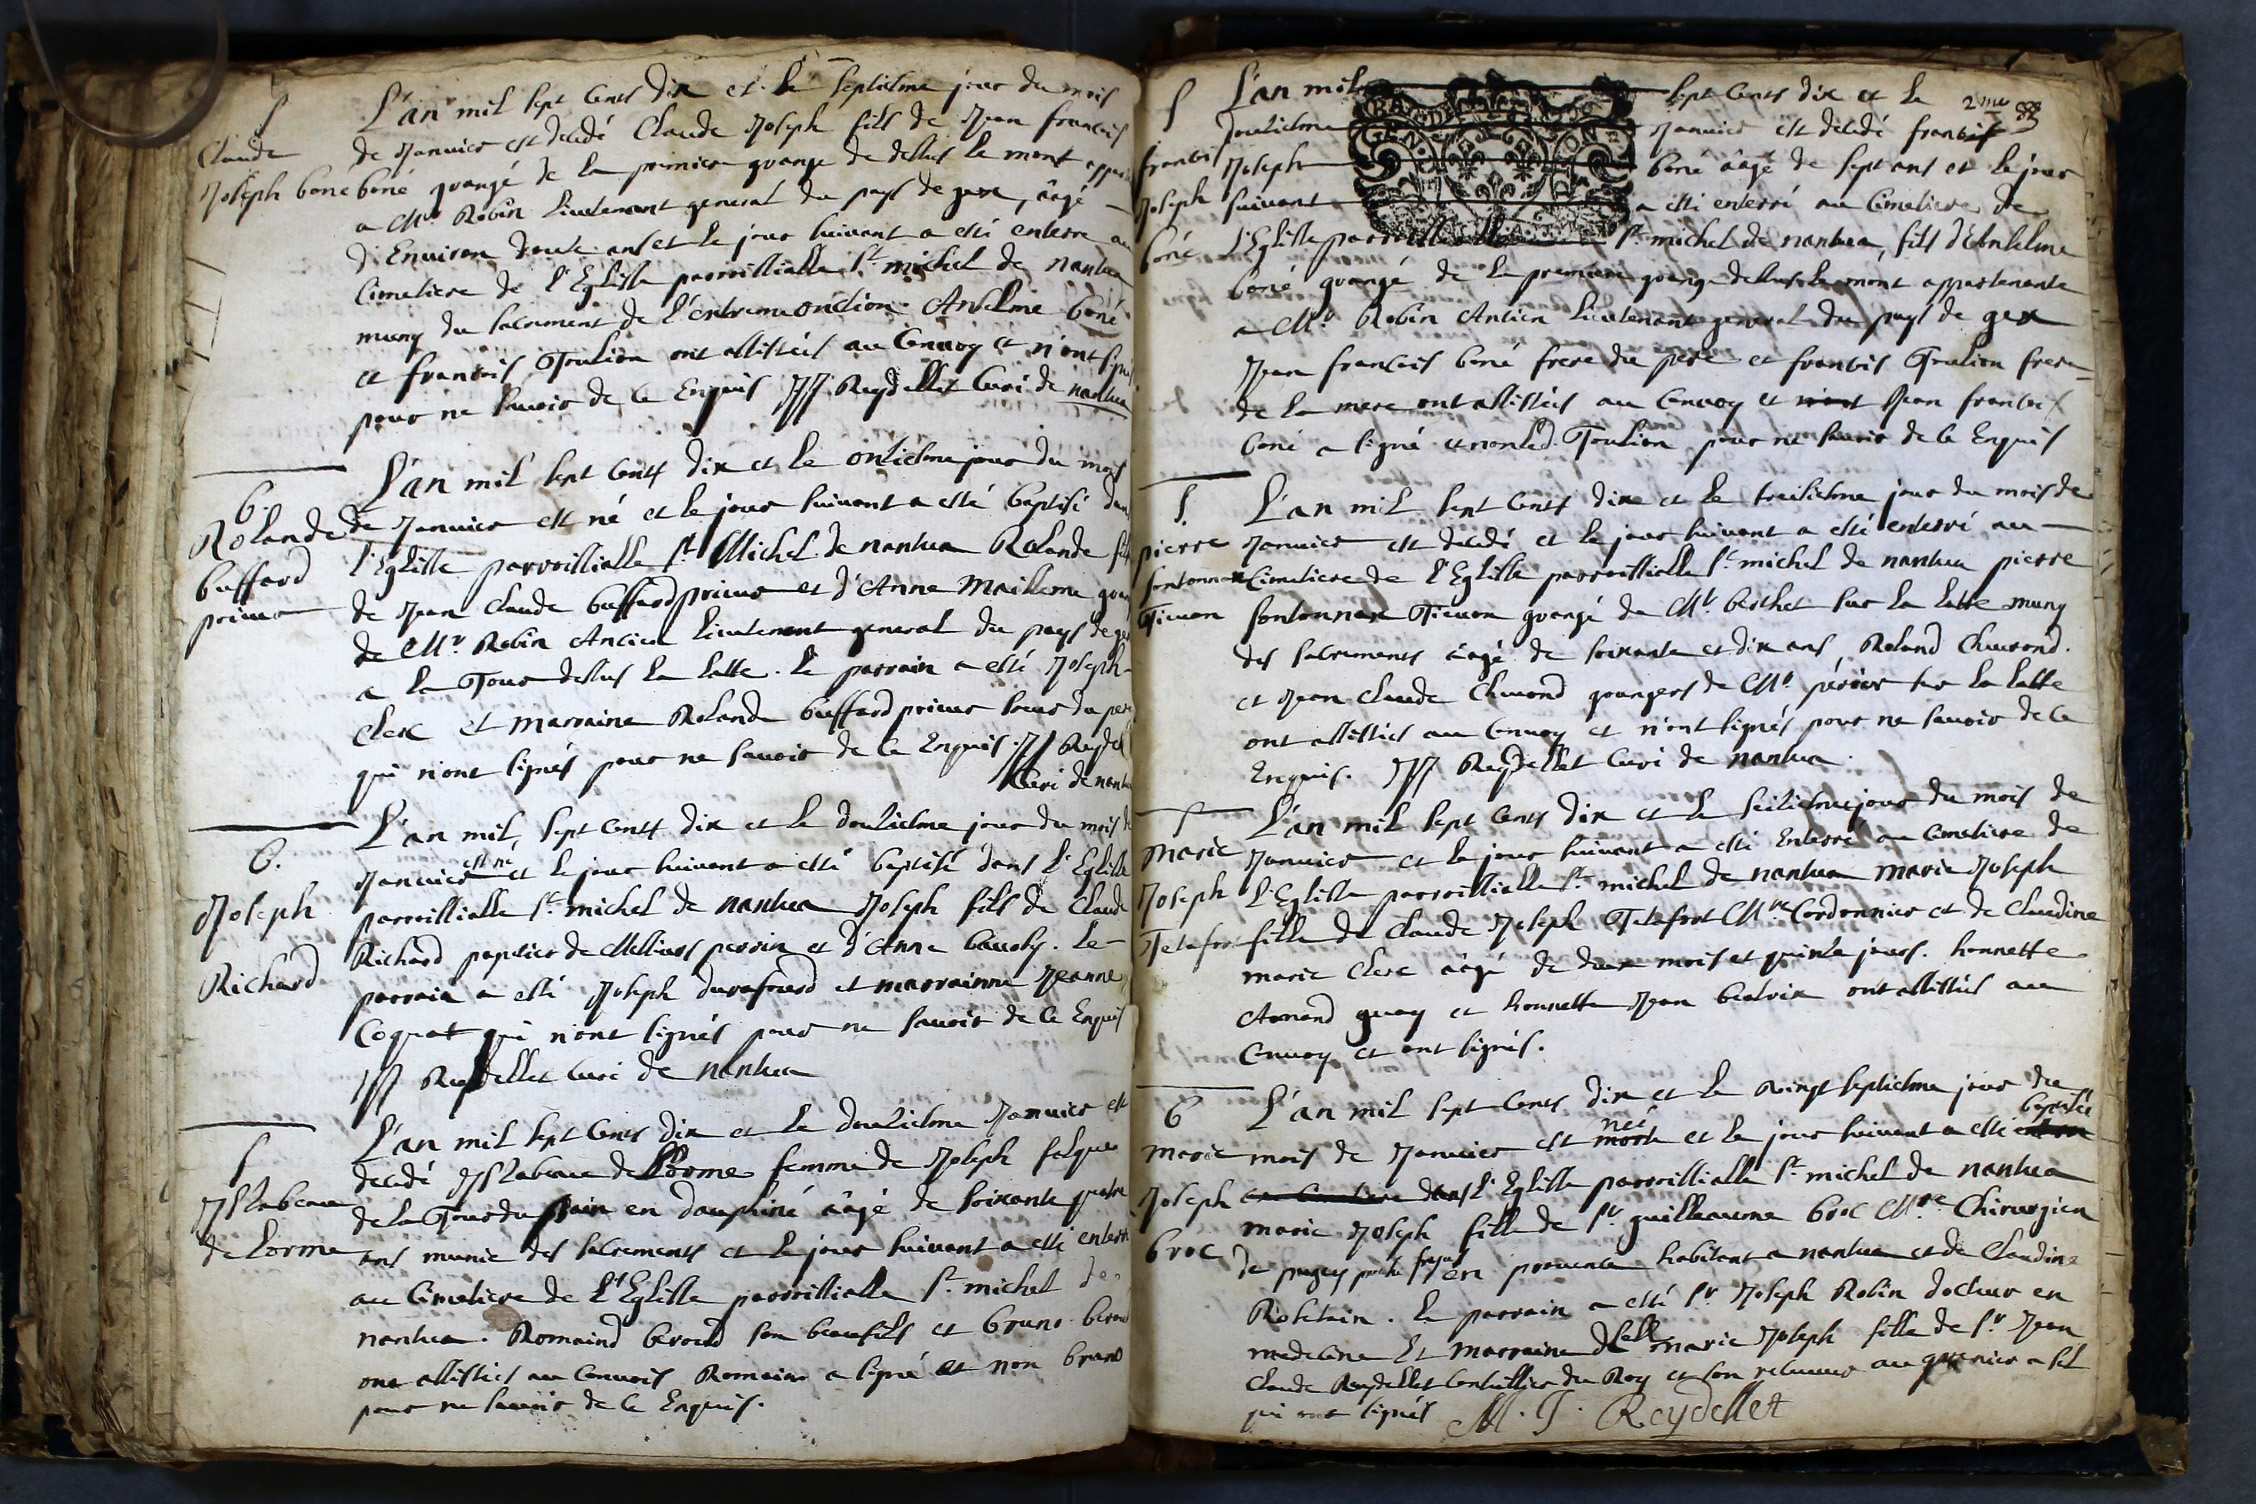 S
Claude
Joseph boné
L'an mil sept cents dix et le septiesme jour du mois
de Janvier est decedé Claude Joseph fils de Jean francois
boné grangé de la premiere grange de dessus le mont
a Mr Robin Lieutenant general du pays de gex, âagé
d'Environ douze ans et le jour suivant a esté enterre au
Cimetiere de l'Eglisse parroissialle St michel de nantua
muny du sacrement de l'extremeonction Anselme boné
et francois Goulion ont assistés au Convoy et n'ont
pour ne sauoir de ce Enquis JJ Reydellet Curé de nantua
B.
Rolande
buffard
prieur
L'an mil sept cents dix et le onziesme jour du mois
de Janvier est né et le jour suivant a esté baptisé dans
l'Eglisse parroissialle St Michel de nantua Rolande
de Jean Claude buffard prieur et d'Anne Maillerne
de Mr Robin Ancien Lieutenant general du pays de gex
a la Tour dessus la latte. Le parrain a esté Joseph
Clerc et marraine Rolande buffard prieur soeur du pere
qui n'ont signés pour ne sauoir de ce Enquis. JJ Reydel
Curé de nantua
B.
Joseph
Richard
L'an mil sept cents dix et le douziesme jour du mois de
Janvier est né et le jour suivant a esté baptisé dans l'Eglisse
parroissialle St michel de nantua Joseph fils de Claude
Richard papetier de Messieurs perrin et d'Anne. Le
parrain a esté Joseph durafourd et marrainne Jeanne
Coquat qui n'ont signés pour ne sauoir de ce Enquis
JJ Reydellet Curé de nantua
S
Jsabeau
de Lorme
L'an mil sept cents dix et le douziesme Janvier est
decedé Jsabeau de Lorme femme de Joseph falque
de la Tour du pain en dauphiné âagé de soixante quatre
ans munie des sacrements et le jour suivant a esté enterré
au Cimetiere de l'Eglisse parroissialle St michel de
nantua. Romaind beroud son beaufils et bruno beroud
ont assistés au Convois Romain a signé et non bruno
pour ne sauoir de ce Enquis.
S
francois
Joseph
boné
L'an mil sept cents dix et le 2me
douziesme Janvier est decedé francois
Joseph boné âagé de sept ans et le jour
suivant a esté enterré au Cimetiere de
l'Eglisse parroissialle St michel de nantua, fils d'Anselme
boné grangé de la premiere grange dessus le mont appartenante
a Mr Robin Ancien Lieutenant general du pays de gex
Jean francois boné frere du pere et francois Goulion frere
de la mere ont assistés au Convoy et n'ont Jean francois
boné a signé et non led. Goulion pour ne sauoir de ce Enquis
S.
pierre
fontonnax
Tienon
L'an mil sept cents dix et le treiziesme jour du mois de
Janvier est decedé et le jour suivant a esté enterré au
Cimetiere de l'Eglisse parroissialle St michel de nantua pierre
fontonnax Tienon grangé de Mr berthet sur la latte muny
des sacrements âagé de soixante et dix ans, Roland Chavond.
et Jean Claude Chavond grangers de Mr périer sur la latte
ont assistés au Convoy et n'ont signés pour ne sauoir de ce
Enquis. JJ Reydellet Curé de nantua.
S
marie
Joseph
Tetafort
L'an mil sept cents dix et le seiziesme jour du mois de
Janvier et le jour suivant a esté Enterré au Cimetiere de
l'Eglisse parroissialle St michel de nantua marie Joseph
fille de Claude Joseph Tetafort Mre Cordonnier et de Claudine
marie Clerc âagé de deux mois et quinze jours. honnette
Armand guay et honnette Jean beatrix ont assistés au
Convoy et ont signés.
B
marie
Joseph
broc
L'an mil sept cents dix et le vingt septiesme jour du
mois de Janvier est morte née et le jour suivant a esté enterré baptisée
au Cimetiere dans l'Eglisse parroissialle St michel de nantua
marie Joseph fille de Sr guilleaume broc Mre Chirurgien
de puget proche frejus en provence habitant a nantua et de Claudine
Rostain. Le parrain a esté Sr Joseph Robin docteur en
medecine Et marraine Delle marie Joseph fille de Sr Jean
Claude Reydellet Conseiller du Roy et son receveur au grenier a sel
qui ont signés M. J. Reydellet